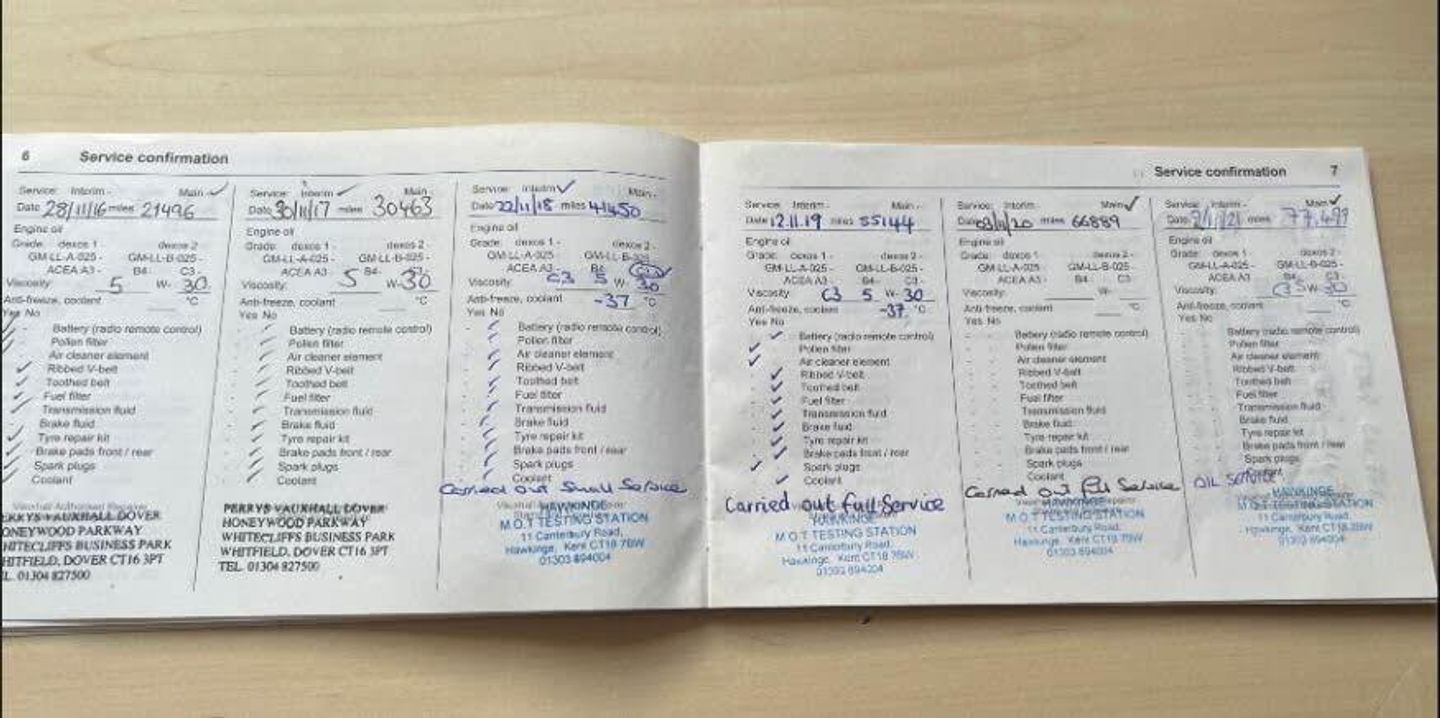 6 Service confirmation
Service: Interim - Main -
Date 28/11/16 miles 21496
Engine oil
Grade: dexos 1 - dexos 2
GM-LL-A-025 - GM-LL-B-025 -
ACEA A3 - B4- C3 -
Viscosity 5 W- 30
Anti-freeze, coolant °C
Yes No
Battery (radio remote control)
Pollen filter
Air cleaner element
Ribbed V-belt
Toothed belt
Fuel filter
Transmission fluid
Brake fluid
Tyre repair kit
Brake pads front / rear
Spark plugs
Coolant
PERRYS VAUXHALL DOVER
HONEYWOOD PARKWAY
WHITECLIFFS BUSINESS PARK
WHITFIELD, DOVER CT16 3PT
TEL. 01304 827500
Service: Interim Main -
Date 30/11/17 miles 30463
Engine oil
Grade: dexos 1 - dexos 2 -
GM-LL-A-025 - GM-LL-B-025 -
ACEA A3 - B4-
Viscosity: 5 W- 30
Anti-freeze, coolant °C
Yes No
Battery (radio remote control)
Pollen filter
Air cleaner element
Ribbed V-belt
Toothed belt
Fuel filter
Transmission fluid
Brake fluid
Tyre repair kit
Brake pads front / rear
Spark plugs
Coolant
PERRYS VAUXHALL DOVER
HONEYWOOD PARKWAY
WHITECLIFFS BUSINESS PARK
WHITFIELD, DOVER CT16 3PT
TEL. 01304 827500
Service: Interim Main -
Date 22/11/18 miles 41450
Engine oil
Grade: dexos 1 - dexos 2 -
GM-LL-A-025 - GM-LL-B-025
ACEA A3 - B4
Viscosity: C3 5 W- 30
Anti-freeze, coolant -37 °C
Yes No
Battery (radio remote control)
Pollen filter
Air cleaner element
Ribbed V-belt
Toothed belt
Fuel filter
Transmission fluid
Brake fluid
Tyre repair kit
Brake pads front / rear
Spark plugs
Coolant
Carried out Small Service
HAWKINGE
M.O.T TESTING STATION
11 Canterbury Road,
Hawkinge, Kent CT18 7BW
01303 894004
Service confirmation 7
Service: Interim - Main -
Date 12.11.19 miles 55144
Engine oil
Grade: dexos 1 - dexos 2 -
GM-LL-A-025 - GM-LL-B-025 -
ACEA A3 - B4- C3 -
Viscosity C3 5 W- 30
Anti-freeze, coolant -37 °C
Yes No
Battery (radio remote control)
Pollen filter
Air cleaner element
Ribbed V-belt
Toothed belt
Fuel filter
Transmission fluid
Brake fluid
Tyre repair kit
Brake pads front / rear
Spark plugs
Coolant
Carried out full Service
HAWKINGE
M.O.T TESTING STATION
11 Canterbury Road,
Hawkinge, Kent CT18 7BW
01303 894004
Service: Interim - Main
Date 03/11/20 miles 66889
Engine oil
Grade: dexos 1 - dexos 2 -
GM-LL-A-025 - GM-LL-B-025 -
ACEA A3 - B4 - C3 -
Viscosity: W-
Anti-freeze, coolant °C
Yes No
Battery (radio remote control)
Pollen filter
Air cleaner element
Ribbed V-belt
Toothed belt
Fuel filter
Transmission fluid
Brake fluid
Tyre repair kit
Brake pads front / rear
Spark plugs
Coolant
Carried out full Service
HAWKINGE
M.O.T TESTING STATION
11 Canterbury Road,
Hawkinge, Kent CT18 7BW
01303 894004
Service: Interim - Main
Date miles 77,499
Engine oil
Grade: dexos 1 - dexos 2 -
GM-LL-A-025 - GM-LL-B-025 -
ACEA A3 - B4 C3 -
Viscosity: C3 5 W-30
Anti-freeze, coolant °C
Yes No
Battery (radio remote control)
Pollen filter
Air cleaner element
Ribbed V-belt
Toothed belt
Fuel filter
Transmission fluid
Brake fluid
Tyre repair kit
Brake pads front / rear
Spark plugs
Coolant
OIL SERVICE
HAWKINGE
M.O.T TESTING STATION
11 Canterbury Road,
Hawkinge, Kent CT18 7BW
01303 894004